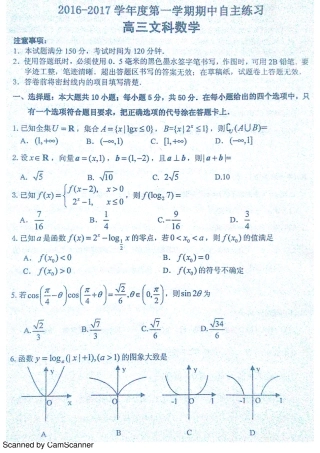 2016-2017 学年度第一学期期中自主练习
高三文科数学
注意事项：
1. 本试题满分 150 分，考试时间为 120 分钟．
2. 使用答题纸时，必须使用 0.5 毫米的黑色墨水签字笔书写，作图时，可用 2B 铅笔．要
字迹工整，笔迹清晰．超出答题区书写的答案无效；在草稿纸，试题卷上答题无效．
3. 答卷前将密封线内的项目填写清楚．
一、选择题：本大题共 10 小题；每小题 5 分，共 50 分．在每小题给出的四个选项中，只
有一个选项符合题目要求，把正确选项的代号涂在答题卡上．
1. 已知全集U = R，集合A={x|lgx≤0}，B={x|2^x≤1}，则∁_U(A∪B)=
A. (1,+∞) B. (−∞,1) C. [1,+∞) D. (−∞,1]
2. 设x∈R，向量a=(x,1)，b=(1,−2)，且a⊥b，则|a+b|=
A. √5 B. √10 C. 2√5 D.10
3. 已知f(x)={f(x−2), x>0
2^x−1, x≤0，则f(log₂7)=
A. 7/16 B. 1/4 C. −9/16 D. 3/4
4. 已知a是函数f(x)=2^x−log_{1/2}x的零点，若0<x₀<a，则f(x₀)的值满足
A. f(x₀)<0 B. f(x₀)=0
C. f(x₀)>0 D. f(x₀)的符号不确定
5. 若cos(π/4−θ)cos(π/4+θ)=√2/6,θ∈(0,π/2)，则sin2θ为
A. √2/3 B. √7/3 C. √7/6 D. √34/6
6. 函数y=log_a(|x|+1),(a>1)的图象大致是
y y y y
O x O -1 O 1 -1 O 1
A B C D
Scanned by CamScanner